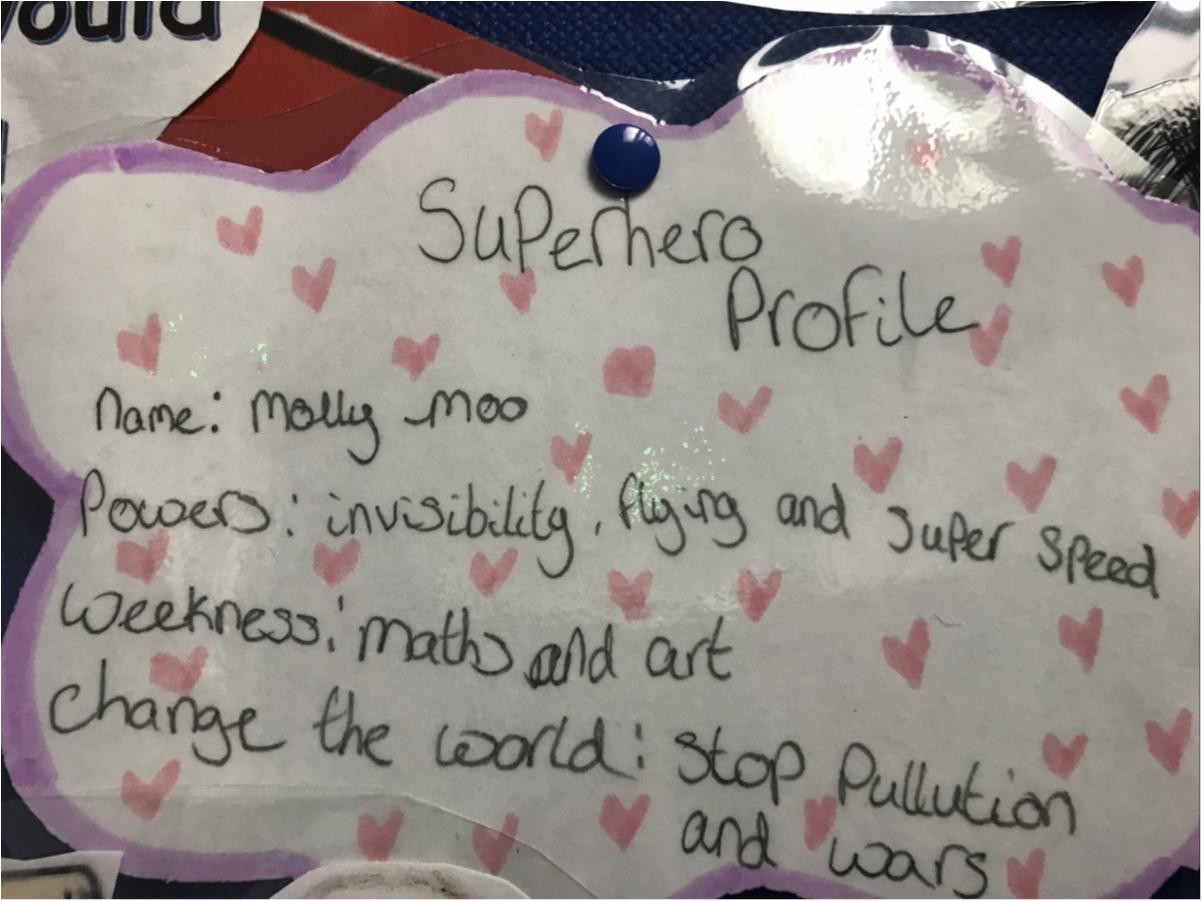 Superhero
Profile
name: Molly moo
Powers: invisibility, flying and super speed
Weekness: maths and art
change the world: stop Pullution
and wars